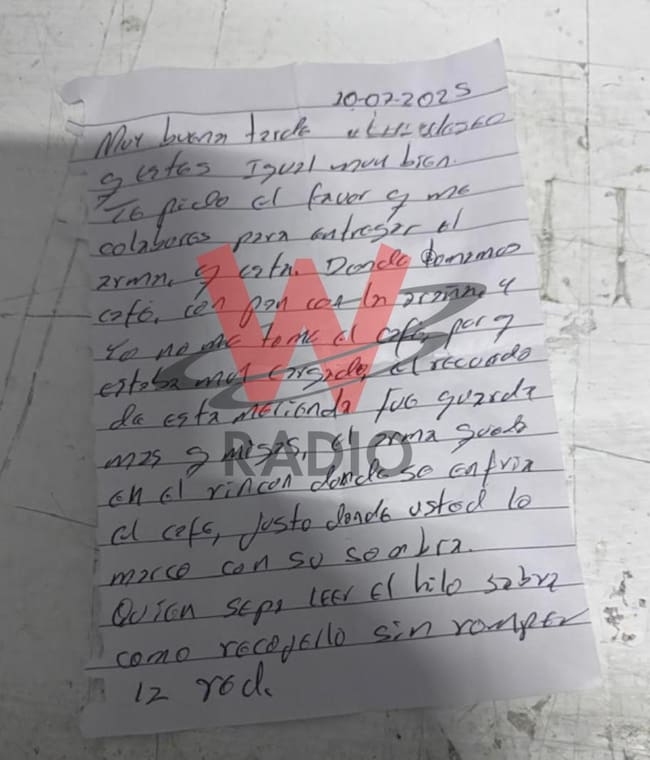 20-02-2025
Muy buena tarde
y estes Igual muy bien.
Te pido el favor q me
colabores para entregar el
arma, q esta. Donde tomamos
cafe, con pan con la araña, y
Yo no me tome el cafe, por q
estaba muy cargado, el recuerdo
de esta merienda fue guarda
mas q migas, el arma quedo
en el rincon donde se enfria
el cafe, justo donde usted lo
marco con su sombra.
Quien sepa leer el hilo sabra
como recogello sin romper
la red.
W
RADIO